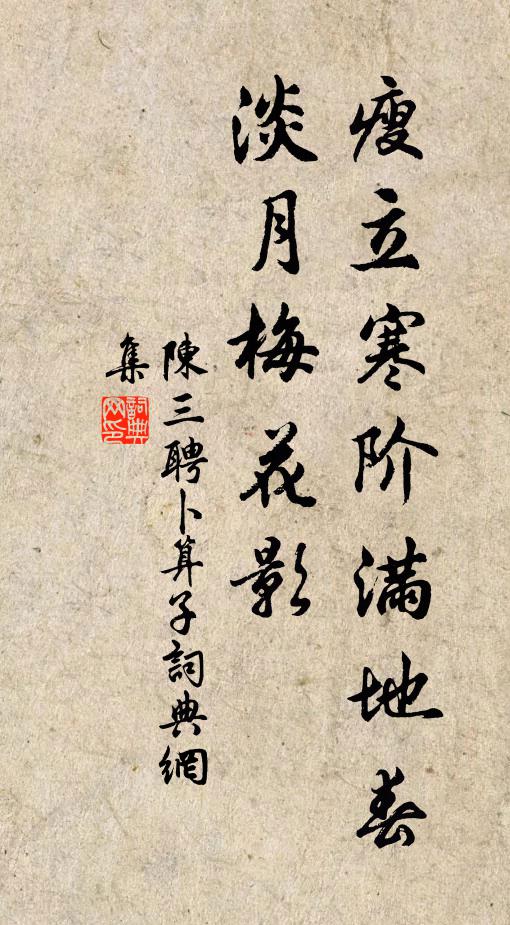 瘦立寒阶满地春
淡月梅花影
陳三聘卜算子詞典網
集
詞典
网印